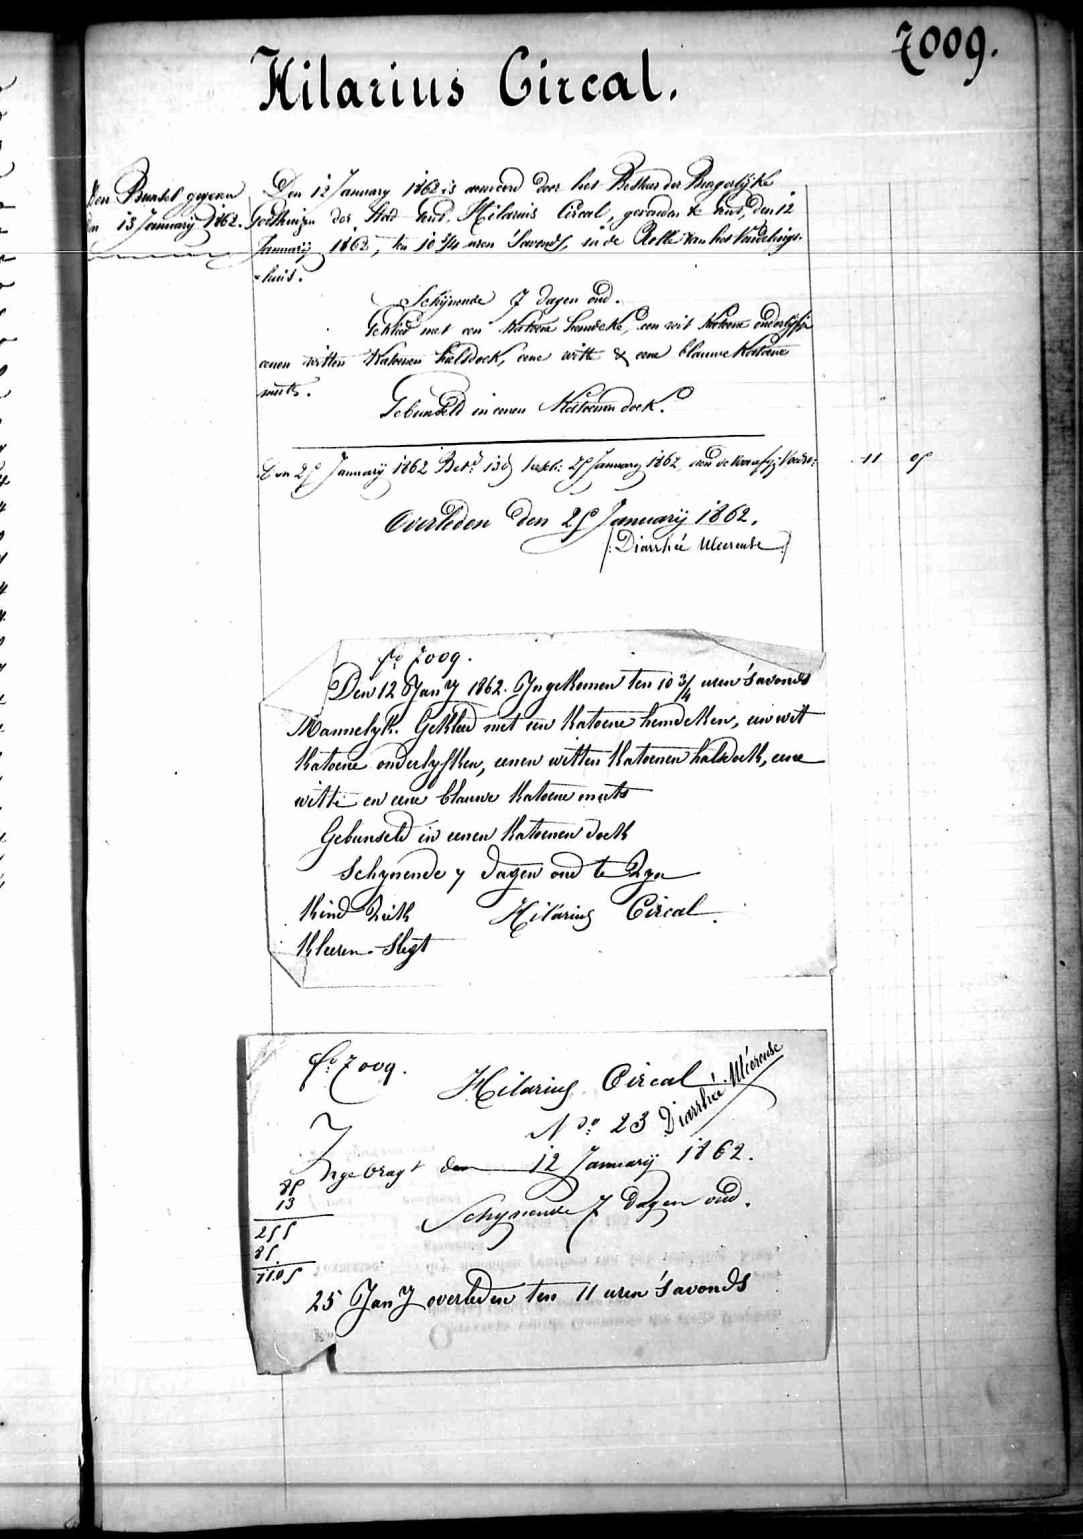 7009.
Hilarius Circal.
Den Bundel gegeven
den 13 January 1862.
Den 12 January 1862 is besteed door het Bestuur der Burgerlijke
Godshuizen der Stad Gent. Hilarius Circal, gevonden te Gent, den 12
January 1862, ten 10 3/4 uren 's avonds, in de Rolle van het Vondelings-
-huis.
Schijnende 7 dagen oud.
Gekleed met een Katoene hemdeke, een wit Katoene onderlijfje
eenen witten Katoenen halsdoek, eene witte & eene blauwe Katoene
muts.
Gebunseld in eenen Katoenen doek.
Den 25 January 1862 Bet. 13 25 January 1862, aan de 11 05
Overleden den 25 January 1862.
(: Diarrhée Ulcereuse :)
fo 7009.
Den 12 Jany 1862. Ingekomen ten 10 3/4 uren 's avonds
Mannelyk. Gekleed met een Katoene hemdeken, een wit
Katoene onderlyfken, eenen witten Katoenen halsdoek, eene
witte en eene blauwe Katoene muts
Gebunseld in eenen Katoenen doek
Schynende 7 dagen oud te Zyn
Kind Ziek Hilarius Circal.
Kleeren - Slegt
fo 7009.
Hilarius Circal
No 23 Diarrhée Ulcereuse
Ingebragt den 12 January 1862.
85
13
255
85.
11.05
Schynende 7 dagen oud.
25 Jany overleden ten 11 uren 's avonds